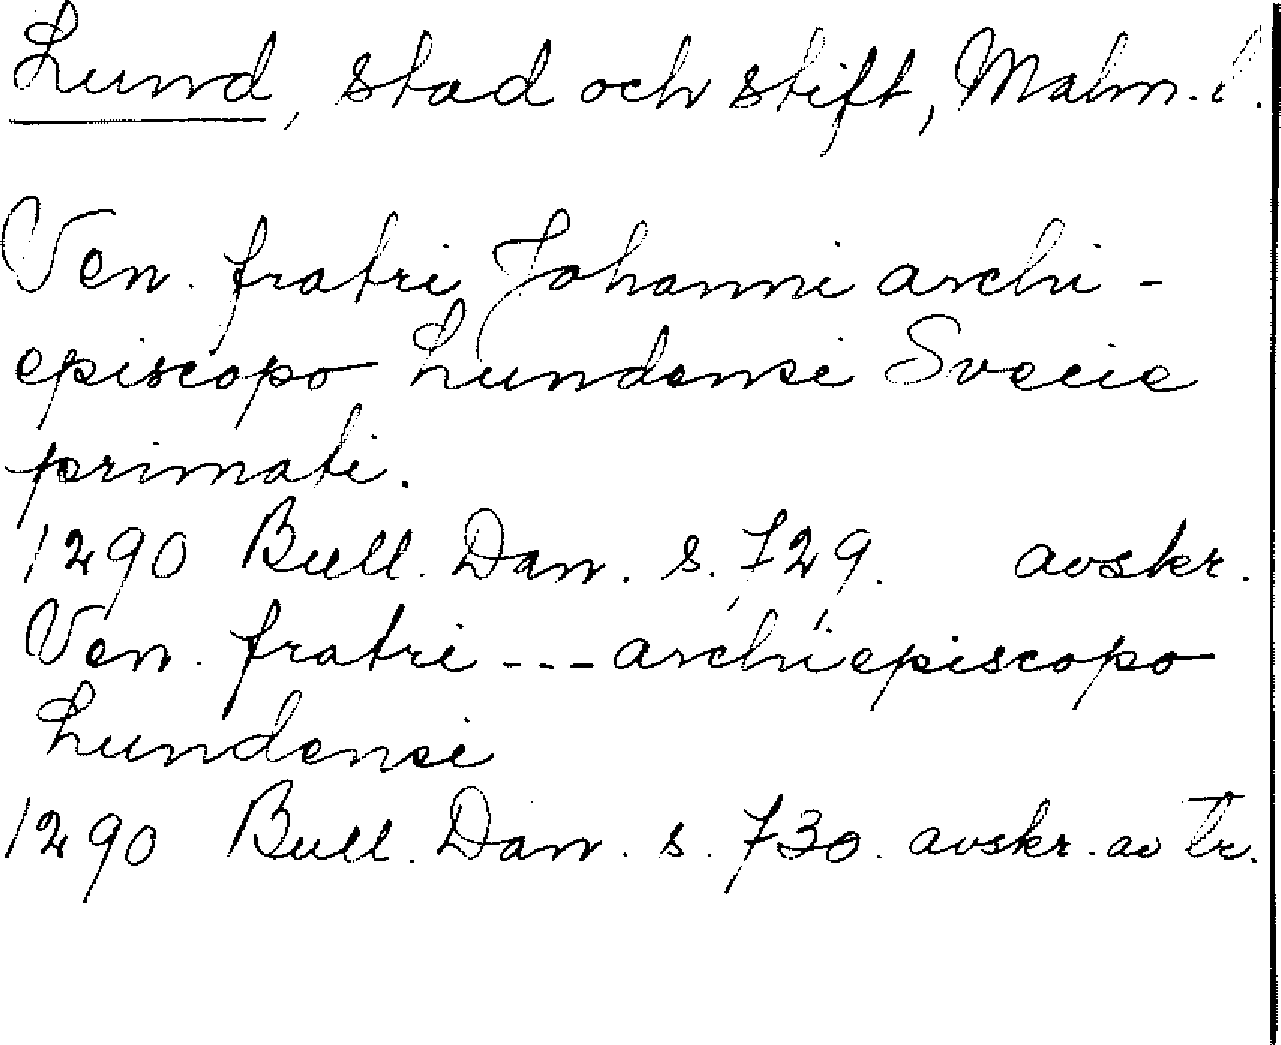 Lund, stad och stift, Malm. l.
Ven. fratri Johanni archi-
episcopo Lundensi Svecie
primati.
1290 Bull. Dan. s. 729. avskr.
Ven. fratri --- archiepiscopo
Lundensi
1290 Bull. Dan. s. 730. avskr. av tr.